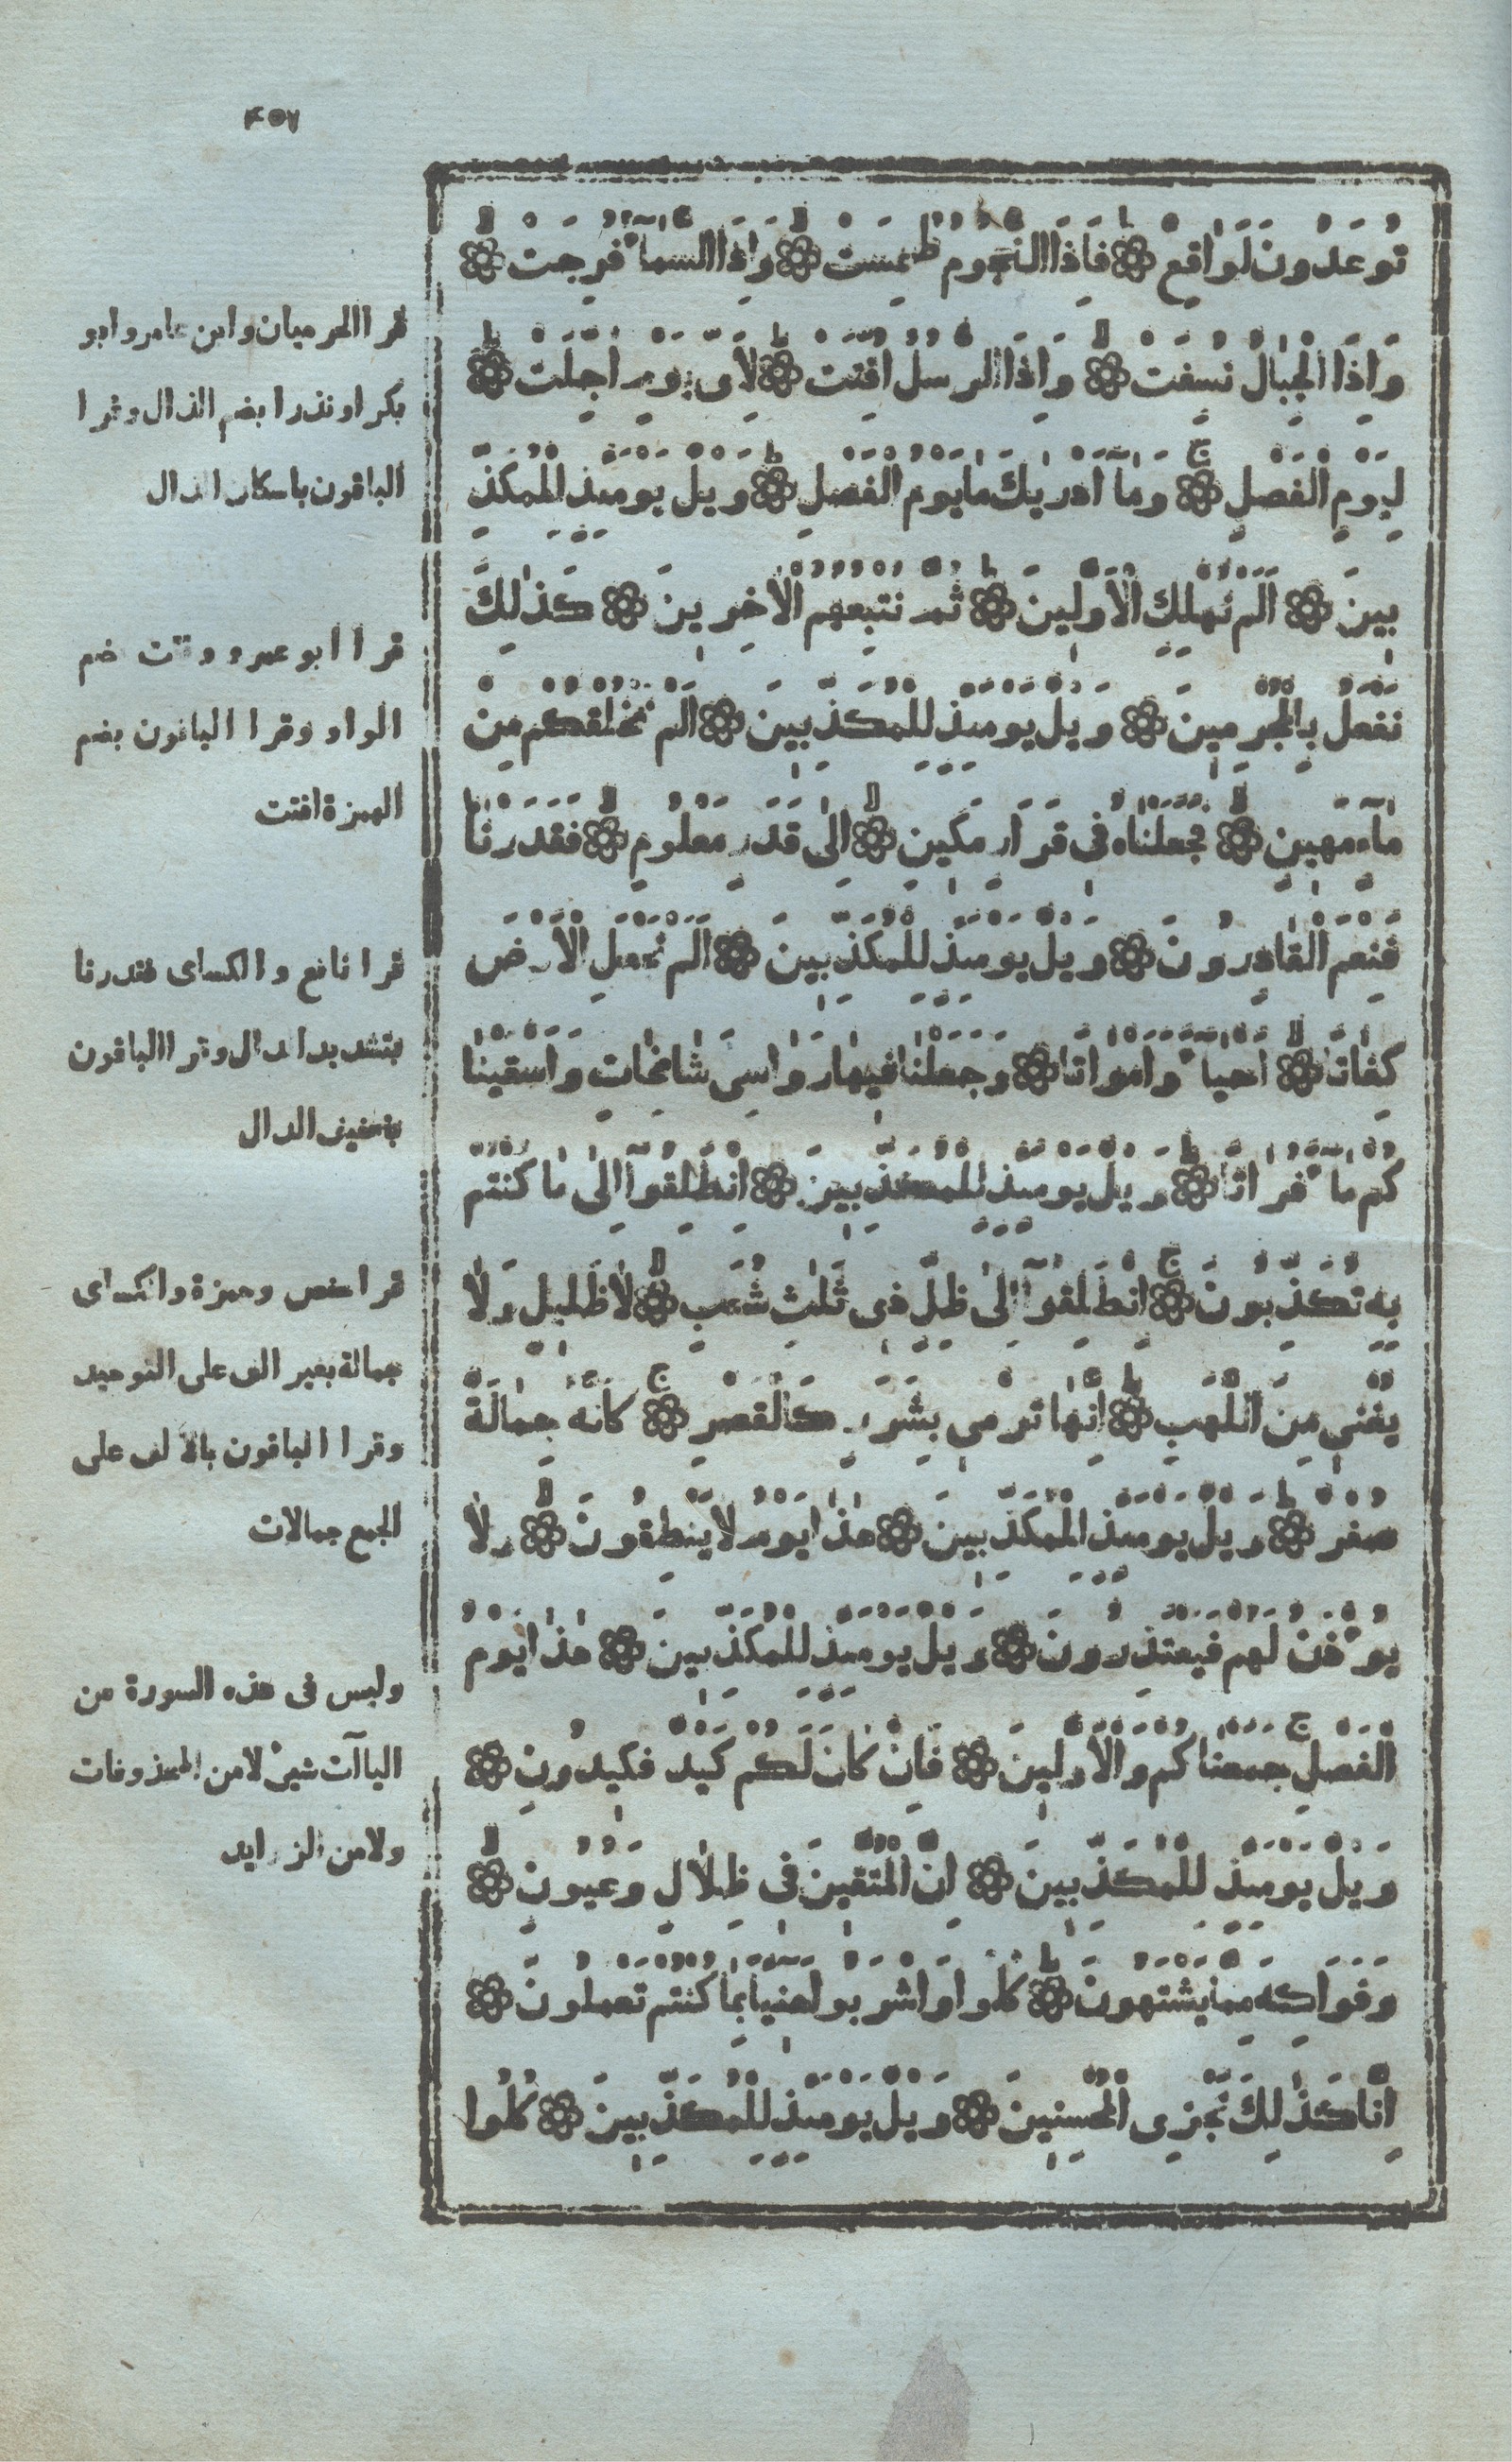 ٤٥٧
تُوعَدُونَ لَوَاقِعٌ ۝ فَإِذَا النُّجُومُ طُمِسَتْ ۝ وَإِذَا السَّمَاءُ فُرِجَتْ ۝
وَإِذَا الْجِبَالُ نُسِفَتْ ۝ وَإِذَا الرُّسُلُ أُقِّتَتْ ۝ لِأَيِّ يَوْمٍ أُجِّلَتْ ۝
لِيَوْمِ الْفَصْلِ ۝ وَمَا أَدْرٰيكَ مَا يَوْمُ الْفَصْلِ ۝ وَيْلٌ يَوْمَئِذٍ لِلْمُكَذِّ
بِينَ ۝ أَلَمْ نُهْلِكِ الْأَوَّلِينَ ۝ ثُمَّ نُتْبِعُهُمُ الْآخِرِينَ ۝ كَذٰلِكَ
نَفْعَلُ بِالْمُجْرِمِينَ ۝ وَيْلٌ يَوْمَئِذٍ لِلْمُكَذِّبِينَ ۝ أَلَمْ نَخْلُقْكُمْ مِنْ
مَاءٍ مَهِينٍ ۝ فَجَعَلْنَاهُ فِي قَرَارٍ مَكِينٍ ۝ إِلٰى قَدَرٍ مَعْلُومٍ ۝ فَقَدَرْنَا
فَنِعْمَ الْقَادِرُونَ ۝ وَيْلٌ يَوْمَئِذٍ لِلْمُكَذِّبِينَ ۝ أَلَمْ نَجْعَلِ الْأَرْضَ
كِفَاتًا ۝ أَحْيَاءً وَأَمْوَاتًا ۝ وَجَعَلْنَا فِيهَا رَوَاسِيَ شَامِخَاتٍ وَأَسْقَيْنَا
كُمْ مَاءً فُرَاتًا ۝ وَيْلٌ يَوْمَئِذٍ لِلْمُكَذِّبِينَ ۝ انْطَلِقُوا إِلٰى مَا كُنْتُمْ
بِهِ تُكَذِّبُونَ ۝ انْطَلِقُوا إِلٰى ظِلٍّ ذِي ثَلٰثِ شُعَبٍ ۝ لَا ظَلِيلٍ وَلَا
يُغْنِي مِنَ اللَّهَبِ ۝ إِنَّهَا تَرْمِي بِشَرَرٍ كَالْقَصْرِ ۝ كَأَنَّهُ جِمَالَةٌ
صُفْرٌ ۝ وَيْلٌ يَوْمَئِذٍ لِلْمُكَذِّبِينَ ۝ هٰذَا يَوْمُ لَا يَنْطِقُونَ ۝ وَلَا
يُؤْذَنُ لَهُمْ فَيَعْتَذِرُونَ ۝ وَيْلٌ يَوْمَئِذٍ لِلْمُكَذِّبِينَ ۝ هٰذَا يَوْمُ
الْفَصْلِ جَمَعْنَاكُمْ وَالْأَوَّلِينَ ۝ فَإِنْ كَانَ لَكُمْ كَيْدٌ فَكِيدُونِ ۝
وَيْلٌ يَوْمَئِذٍ لِلْمُكَذِّبِينَ ۝ إِنَّ الْمُتَّقِينَ فِي ظِلَالٍ وَعُيُونٍ ۝
وَفَوَاكِهَ مِمَّا يَشْتَهُونَ ۝ كُلُوا وَاشْرَبُوا هَنِيئًا بِمَا كُنْتُمْ تَعْمَلُونَ ۝
إِنَّا كَذٰلِكَ نَجْزِي الْمُحْسِنِينَ ۝ وَيْلٌ يَوْمَئِذٍ لِلْمُكَذِّبِينَ ۝ كُلُوا
قرا الحرميان وابن عامر وابو
بكر او نذرا بضم الذال وقرا
الباقون باسكان الذال
قرا ابو عمرو وقتت ضم
الواو وقرا الباقون بضم
الهمزة اقتت
قرا نافع والكساى فقدرنا
بتشديد الدال وقرا الباقون
بتخفيف الدال
قرا حفص وحمزة والكساى
جمالة بغير الف على التوحيد
وقرا الباقون بالالف على
الجمع جمالات
وليس فى هذه السورة من
الياآت شىء لا من المحذوفات
ولا من الزوايد